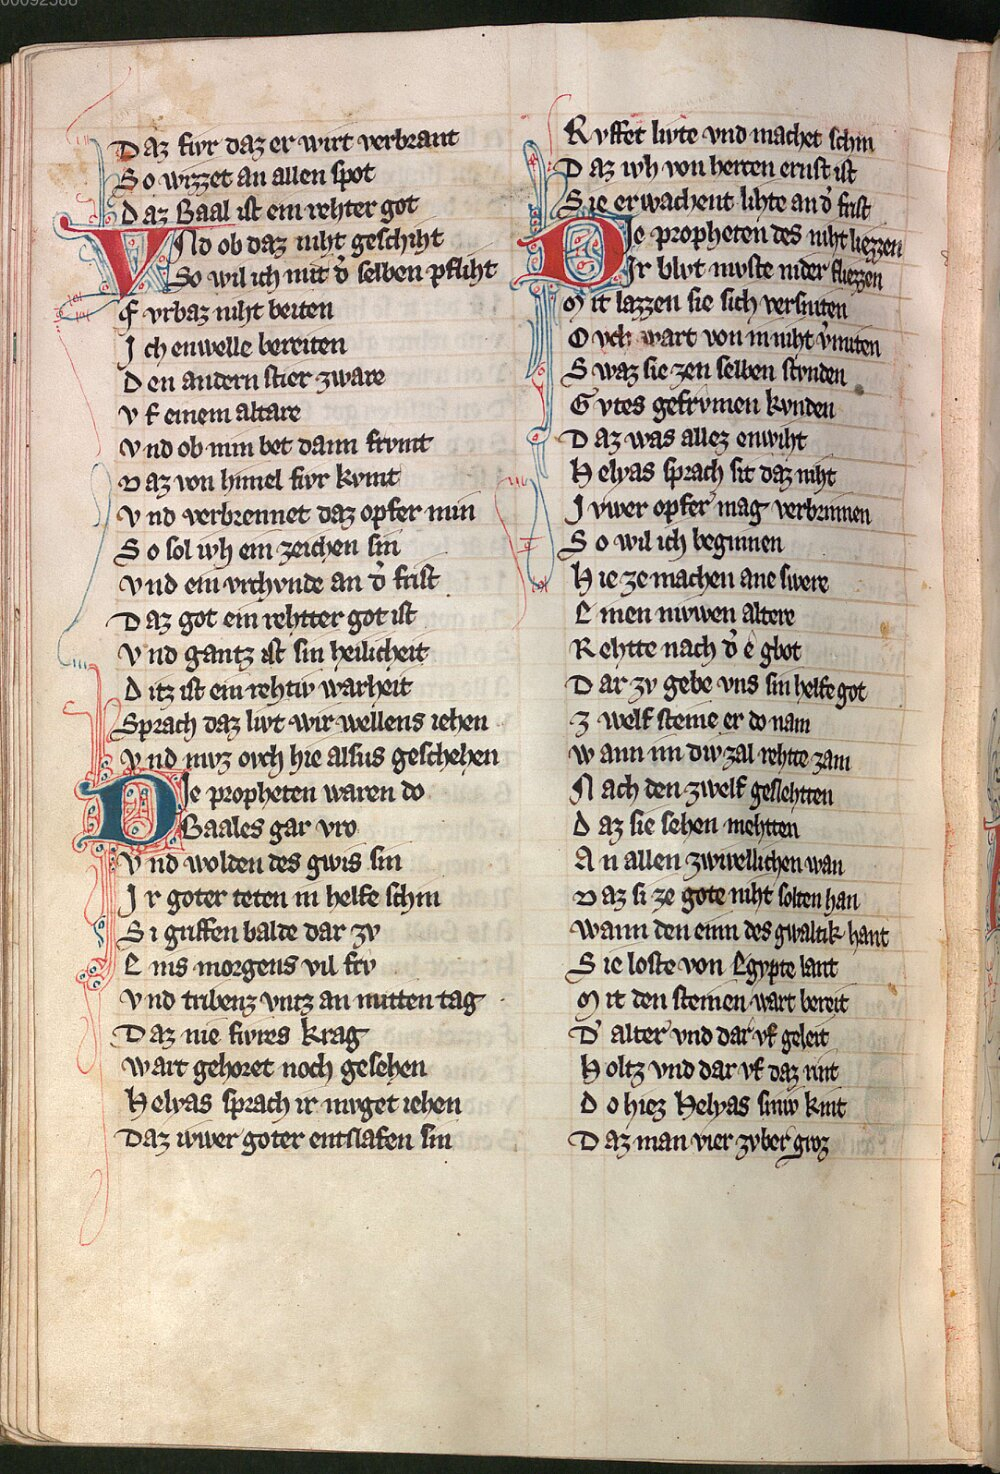 00092588
Daz fivr daz er wirt verbrant
So wizzet an allen spot
Daz Baal ist ein rehter got
Vnd ob daz niht geschiht
So wil ich mit d̾ selben pfliht
Fvrbaz niht beiten
Ich enwelle bereiten
Den andern stier zware
Vf einem altare
Vnd ob min bet dann frvmt
Daz von himel fivr kvmt
Vnd verbrennet daz opfer min
So sol iwh ein zeichen sin
Vnd ein vrchvnde an d̾ frist
Daz got ein rehtter got ist
Vnd gantz ist sin heilicheit
Ditz ist ein rehtiv warheit
Sprach daz livt wir wellens iehen
Vnd mvz ovch hie alsus geschehen
Die propheten waren do
Baales gar vro
Vnd wolden des gwis sin
Ir goter teten in helfe schin
Si guffen balde dar zv
Eins morgens vil frv
Vnd tribenz vntz an mitten tag
Daz nie fivres krag
Wart gehoret noch gesehen
Helyas sprach ir mvget iehen
Daz iwer goter entslafen sin
Rvffet livte vnd machet schin
Daz iwh von herten ernst ist
Sie erwachent lihte an d̾ frist
Die propheten des niht liezzen
Ir blvt mvste nider fliezzen
Mit lazzen sie sich versniten
Ovch wart von in niht v̾miten
Swaz sie zen selben stvnden
Gvtes gefrvmen kvnden
Daz was allez enwiht
Helyas sprach sit daz niht
Ivwer opfer mag verbrinnen
So wil ich beginnen
Hie ze machen ane swere
Einen nivwen altere
Rehtte nach d̾ e gbot
Dar zv gebe vns sin helfe got
Zwelf steine er do nam
Wann im div zal rehtte zam
Nach den zwelf geslehtten
Daz sie sehen mehtten
An allen zwivellichen wan
Daz si ze gote niht solten han
Wann den einn des gwaltik hant
Sie loste von Egypte lant
Mit den steinen wart bereit
D̾ alter vnd dar vf geleit
Holtz vnd dar vf daz rint
Do hiez Helyas siniv kint
Daz man vier zvber groz